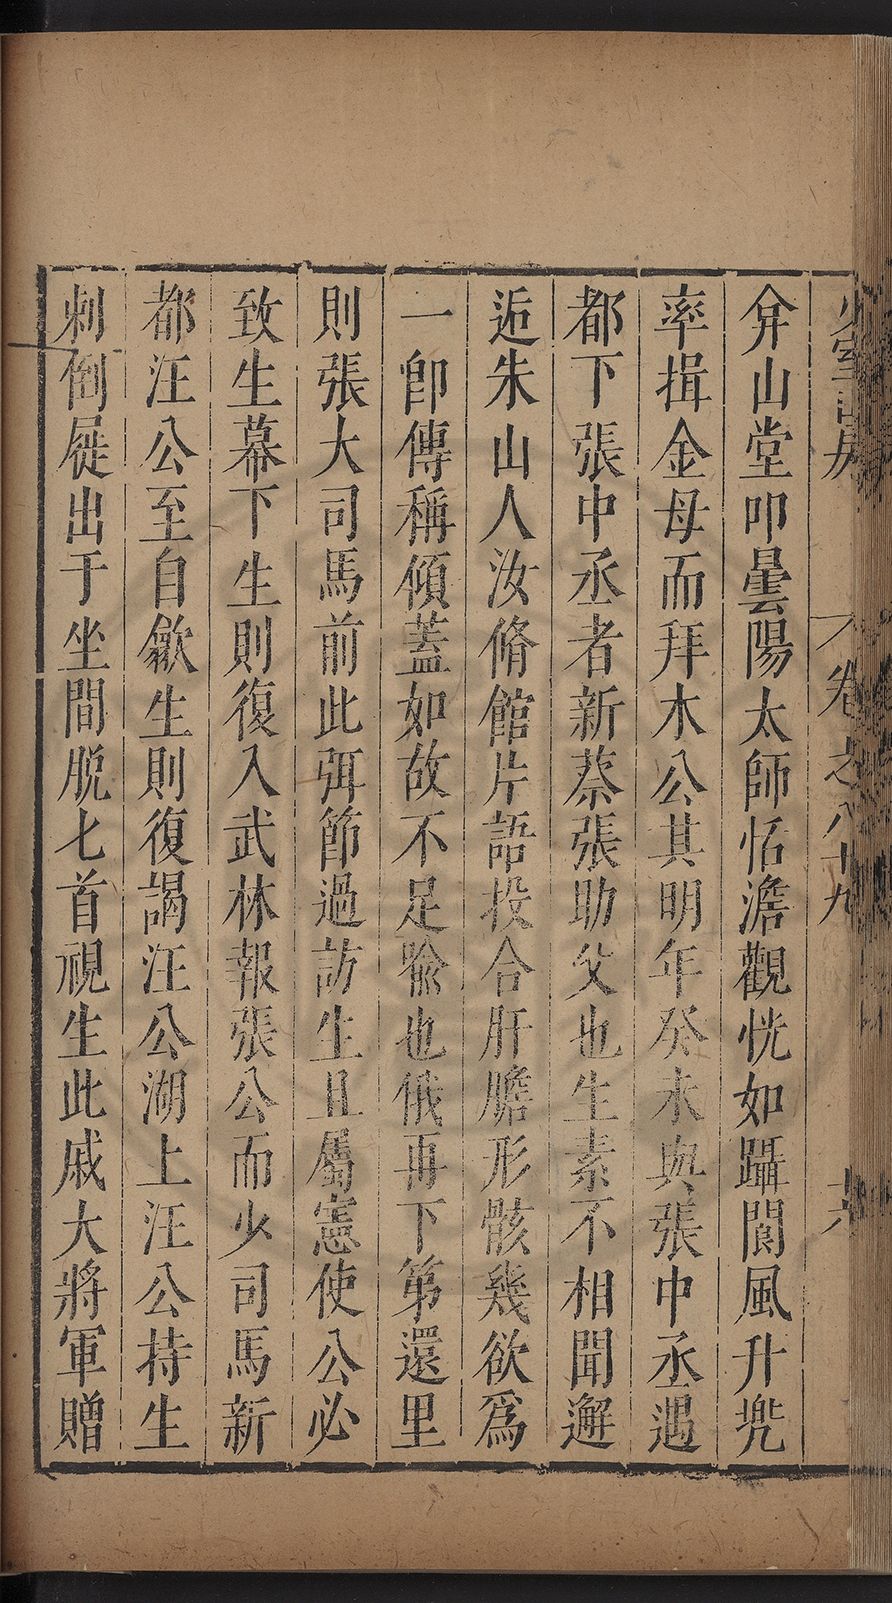 少室山房 卷之八十九 十六
弇山堂叩曇陽太師恬澹觀恍如躡閬風升兠
率揖金母而拜木公其明年癸未與張中丞遇
都下張中丞者新蔡張助父也生素不相聞邂
逅朱山人汝脩館片語投合肝膽形骸幾欲爲
一卽傳稱傾蓋如故不足踰也俄再下第還里
則張大司馬前此弭節過訪生且屬憲使公必
致生幕下生則復入武林報張公而少司馬新
都汪公至自歙生則復謁汪公湖上汪公持生
刺倒屣出于坐間脱匕首視生此戚大將軍贈